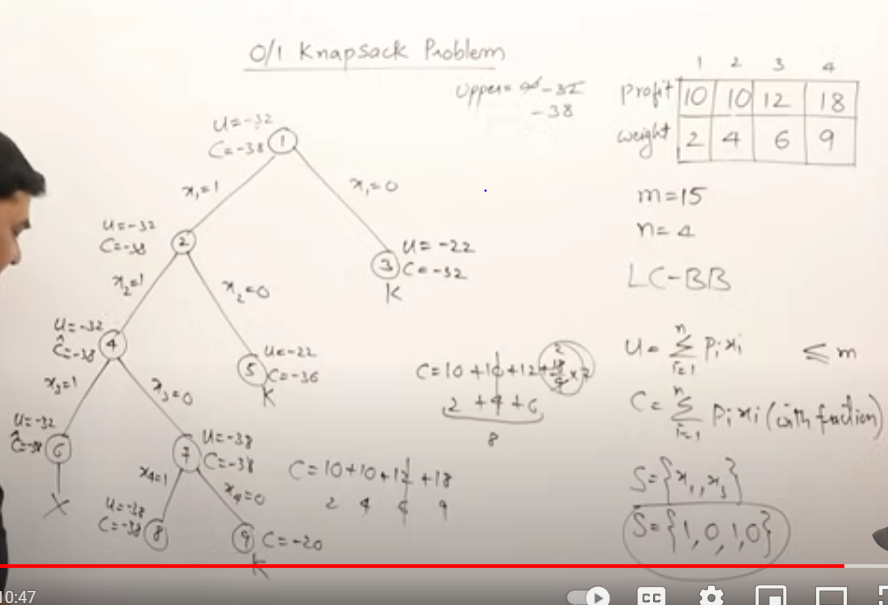 0/1 Knapsack Problem
Upper = ∞ -32
-38
1 2 3 4
Profit 10 10 12 18
Weight 2 4 6 9
m=15
n=4
LC-BB
U= Σ i=1 n Pi xi ≤ m
C= Σ i=1 n Pi xi (with fraction)
S={x1, x3}
S={1,0,1,0}
U=-32
C=-38
1
x1=1
x1=0
U=-32
C=-38
2
U=-22
3 C=-32
K
x2=1
x2=0
U=-32
Ĉ=-38
4
U=-22
5 C=-36
K
x3=1
x3=0
U=-32
Ĉ=-38
6
X
U=-38
7 C=-38
x4=1
x4=0
U=-38
C=-38 8
9 C=-20
K
C=10+10+12+18/9×7
2
2+4+6
8
C=10+10+12+18
2 4 6 9
10:47
CC